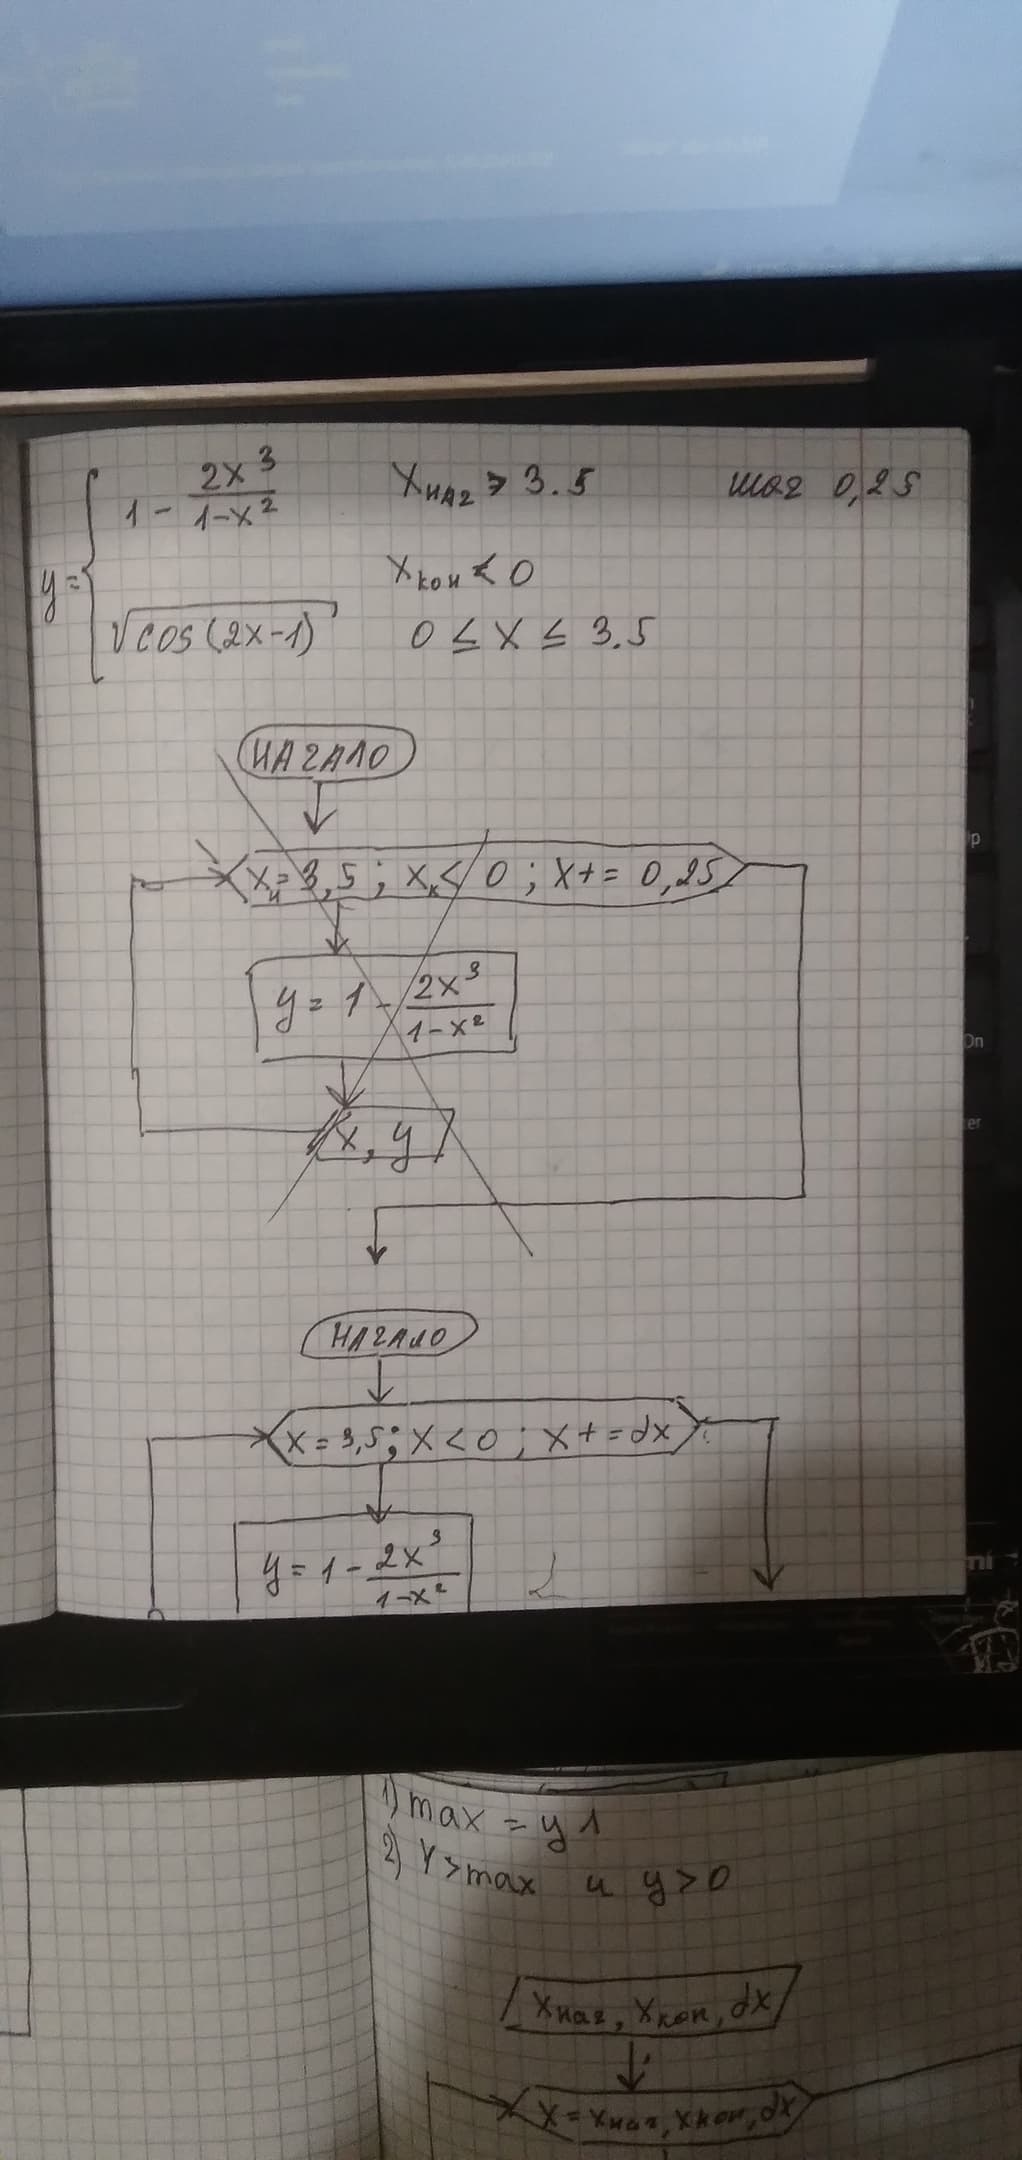 y = { 1 - 2x³/(1-x²) xнач > 3.5 шаг 0,25
xкон < 0
√cos(2x-1) 0 ≤ x ≤ 3.5
НАЧАЛО
xн=3,5; xк< 0; x+= 0,25
y = 1 - 2x³/(1-x²)
x, y
НАЧАЛО
x=3,5; x<0; x+=dx
y = 1 - 2x³/(1-x²)
1) max = y1
2) Y>max и y>0
xнач, xкон, dx
x=xнач, xкон, dx